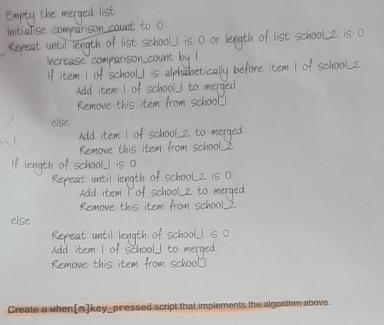 Empty the merged list
Initialise comparison_count to 0
Repeat until length of list school_1 is 0 or length of list school_2 is 0
Increase comparison_count by 1
If item 1 of school_1 is alphabetically before item 1 of school_2
Add item 1 of school_1 to merged
Remove this item from school_1
else
Add item 1 of school_2 to merged
Remove this item from school_2
If length of school_1 is 0
Repeat until length of school_2 is 0
Add item 1 of school_2 to merged
Remove this item from school_2
else
Repeat until length of school_1 is 0
Add item 1 of school_1 to merged
Remove this item from school_1
Create a when[m]key_pressed script that implements the algorithm above.